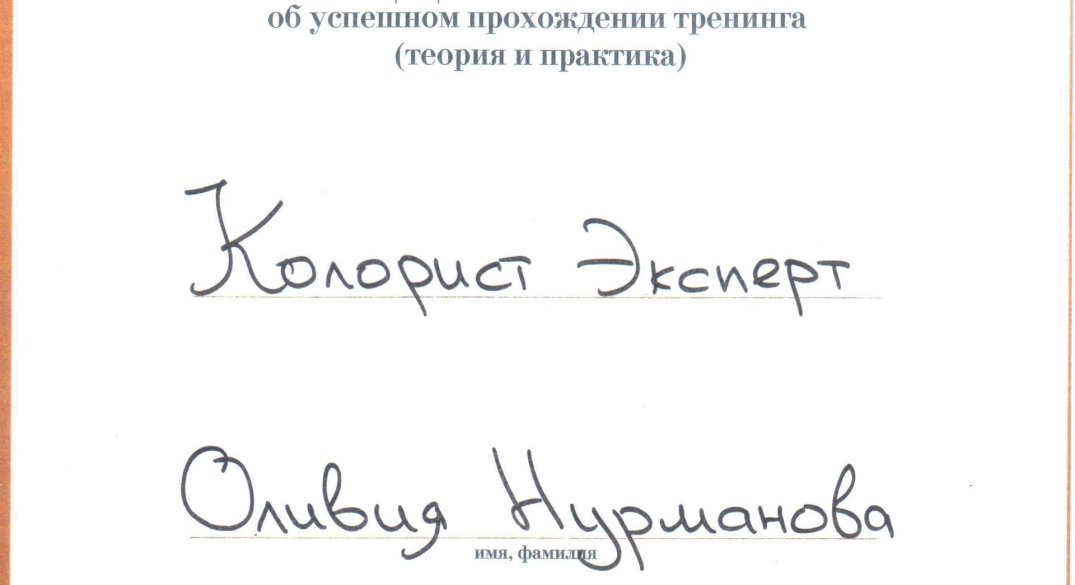 об успешном прохождении тренинга
(теория и практика)
Колорист Эксперт
Оливия Нурманова
имя, фамилия